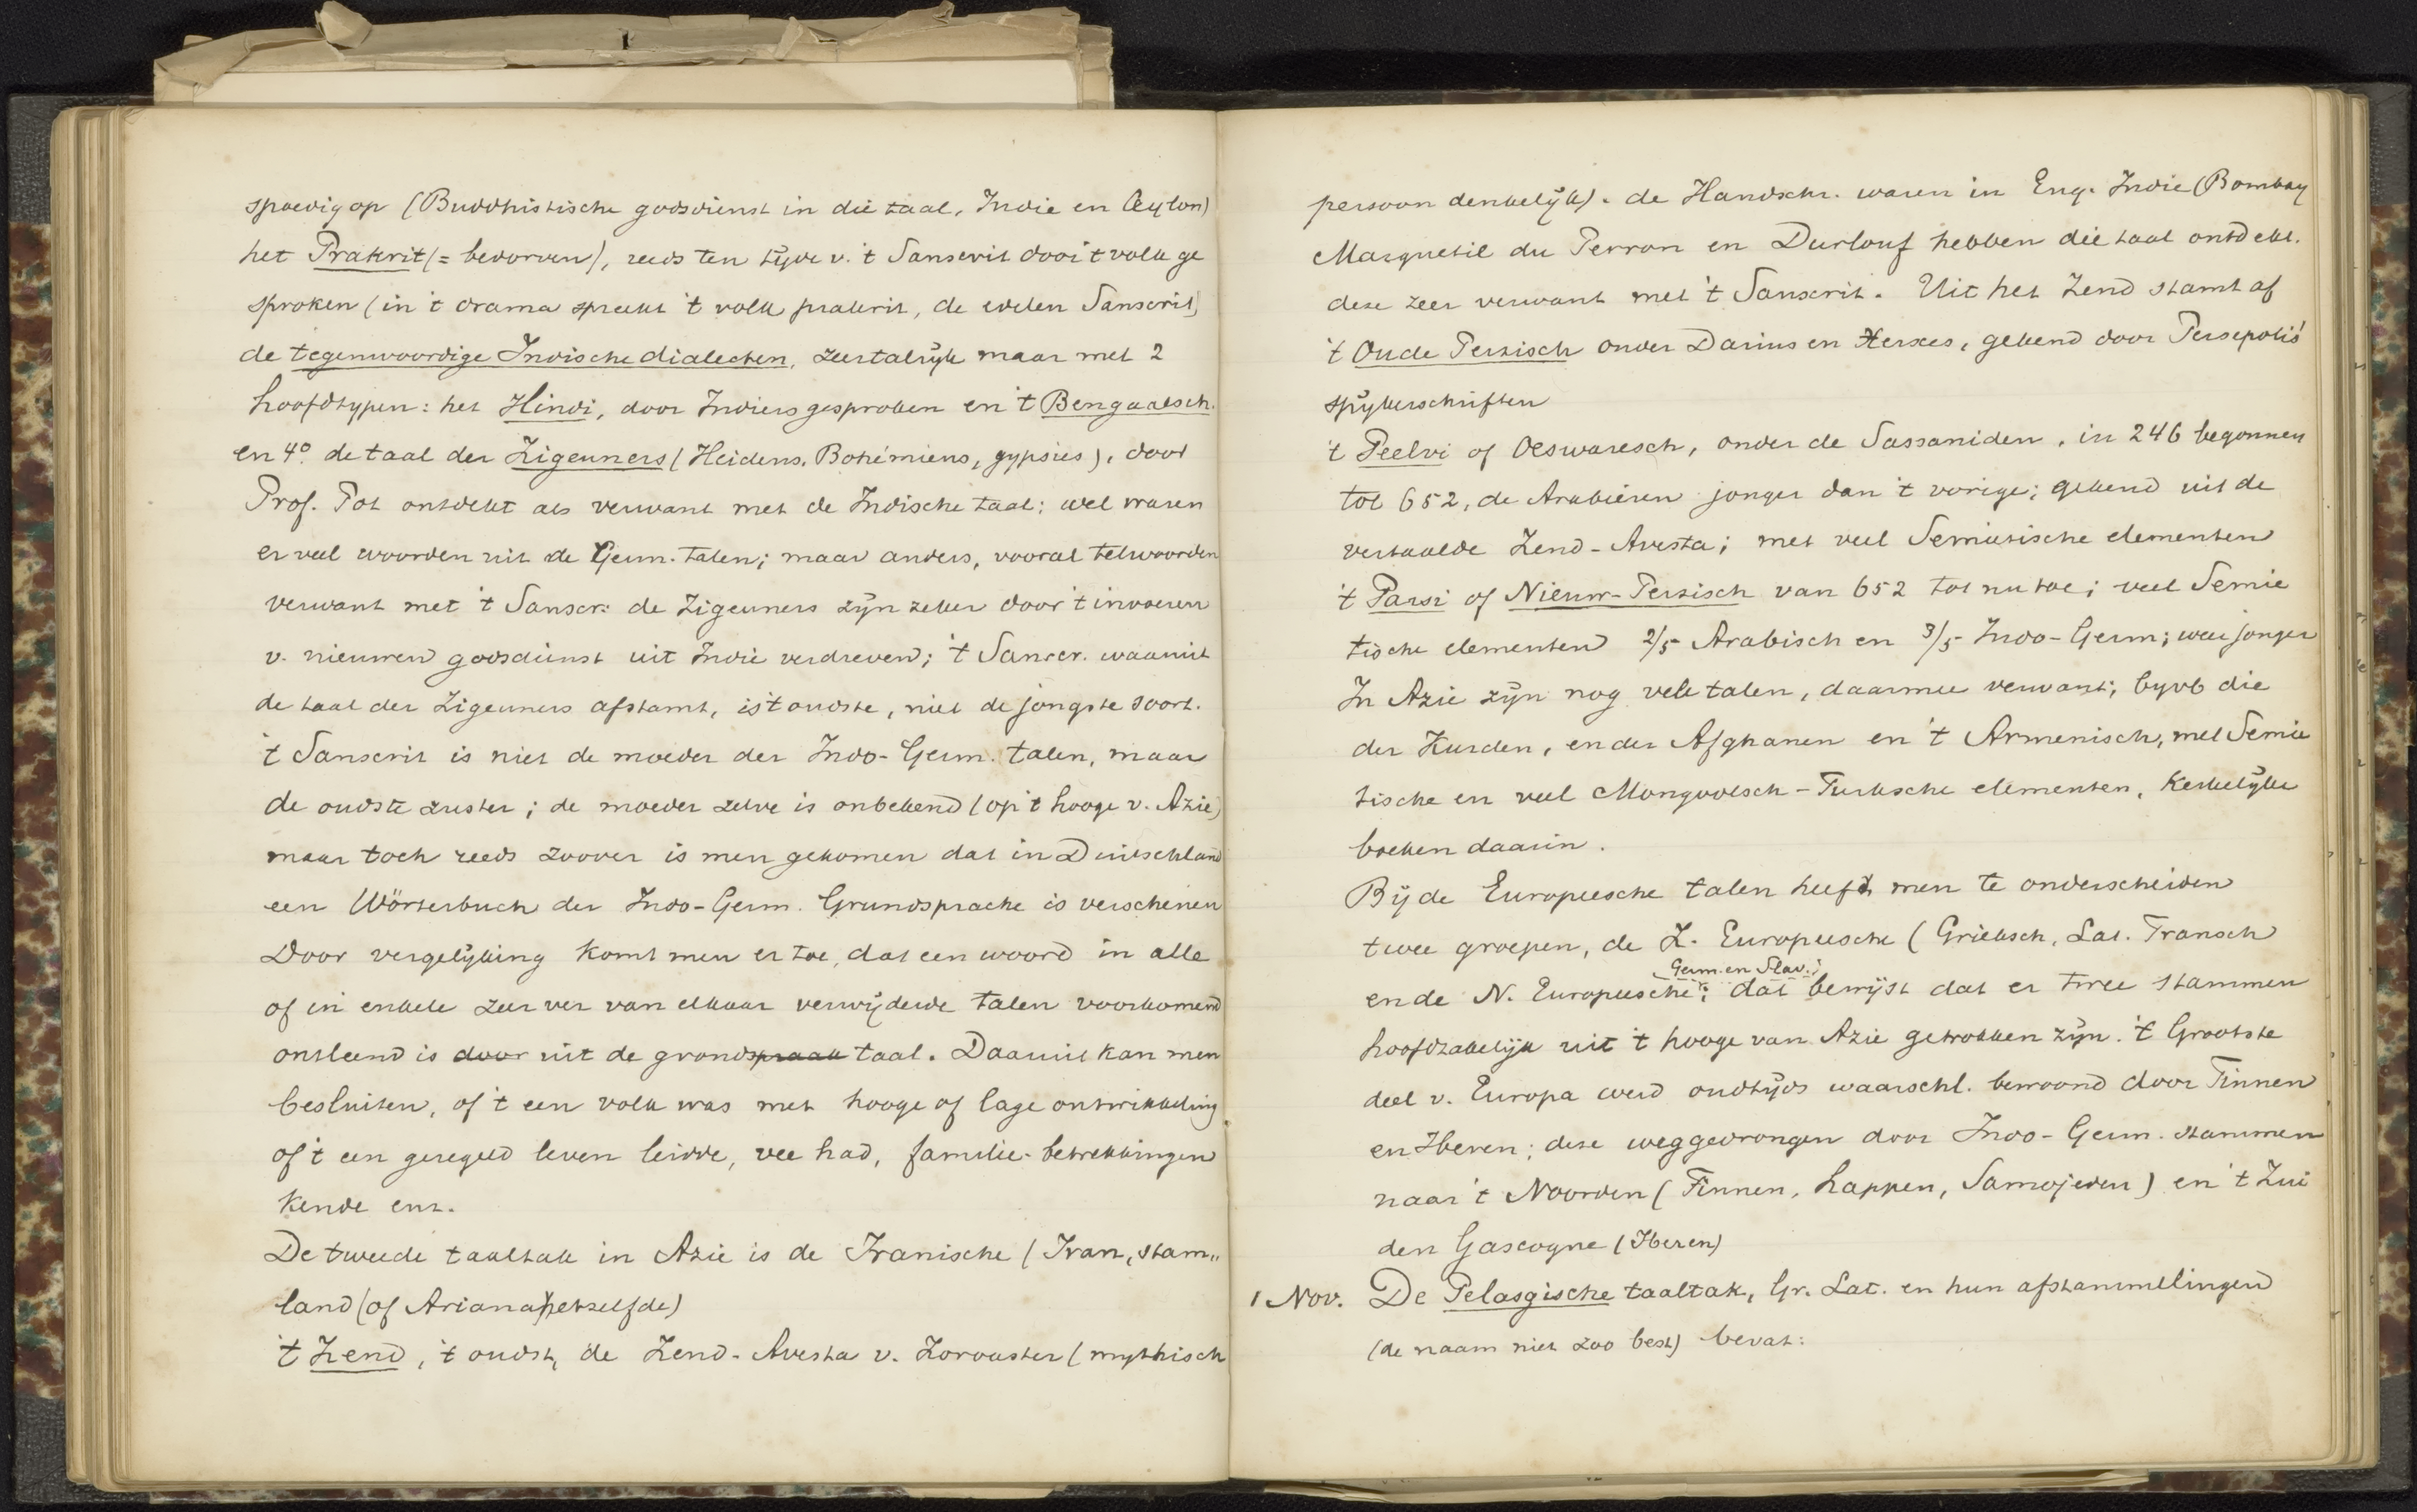 spoedig op (Buddhistische godsdienst in die taal, Indie en Ceylon)
het Prakrit (= bedorven), reeds ten tijde v. 't Sanscrit door 't volk ge
sproken (in 't drama spreekt 't volk prakrit, de edelen Sanscrit)
de tegenwoordige Indische dialecten, zeer talrijk maar met 2
hoofdtypen: het Hindi, door Indiers gesproken en 't Bengaalsch.
en 4o. de taal der Zigeuners (Heidens, Bohémiens, gypsies), door
Prof. Pot ontdekt als verwant met de Indische taal; wel waren
er veel woorden uit de Germ. talen; maar anders, vooral telwoorden
verwant met 't Sanscr: de Zigeuners zijn zeker door 't invoeren
v. nieuwen godsdienst uit Indie verdreven; 't Sanscr. waaruit
de taal der Zigeuners afstamt, is 't oudste, niet de jongste soort.
't Sanscrit is niet de moeder der Indo-Germ. talen, maar
de oudste zuster; de moeder zelve is onbekend (op 't hooge v. Azie)
maar toch reeds zoover is men gekomen dat in Duitschland
een Wörterbuch der Indo-Germ. Grundsprache is verschenen
Door vergelijking komt men er toe, dat een woord in alle
of in enkele zeer ver van elkaar verwijderde talen voorkomend
ontleend is door uit de grondspraak taal. Daaruit kan men
besluiten, of 't een volk was met hooge of lage ontwikkeling
of 't een geregeld leven leidde, vee had, familie-betrekkingen
kende enz.
De tweede taaltak in Azie is de Iranische (Iran, stam„
land (of Ariana hetzelfde)
't Zend, 't oudst, de Zend-Avesta v. Zoroaster (mythisch
persoon denkelijk). de Handschr. waren in Eng. Indie (Bombay
Marquetil du Perron en Burlouf hebben die taal ontdekt.
deze zeer verwant met 't Sanscrit. Uit het Zend stamt af
't Oude Perzisch onder Darius en Xerxes, gekend door Persepolis'
spijkerschriften
't Peelvi of Oeswaresch, onder de Sassaniden, in 246 begonnen
tot 652, de Arabieren jonger dan 't vorige; gekend uit de
vertaalde Zend-Avesta; met veel Semitische elementen
't Parsi of Nieuw-Perzisch van 652 tot nu toe; veel Semie
tische elementen 2/5 Arabisch en 3/5 Indo-Germ; weer jonger
In Azie zijn nog vele talen, daarmee verwant; byvb die
der Kurden, en der Afghanen en 't Armenisch, met Semie
tische en veel Mongoolsch-Turksche elementen, Kerkelijke
boeken daarin.
Bij de Europeesche talen heeft men te onderscheiden
twee groepen, de Z. Europeesche (Grieksch, Lat. Fransch
Germ. en Slav.)
en de N. Europeesche; dat bewijst dat er twee stammen
hoofdzakelijk uit 't hooge van Azie getrokken zijn. 't Grootste
deel v. Europa werd oudtijds waarschl. bewoond door Finnen
en Iberen; deze weggedrongen door Indo-Germ. stammen
naar 't Noorden (Finnen, Lappen, Samojeden) en 't Zui
den Gascogne (Iberen)
1 Nov. De Pelasgische taaltak, Gr. Lat. en hun afstammelingen
(de naam niet zoo best) bevat: